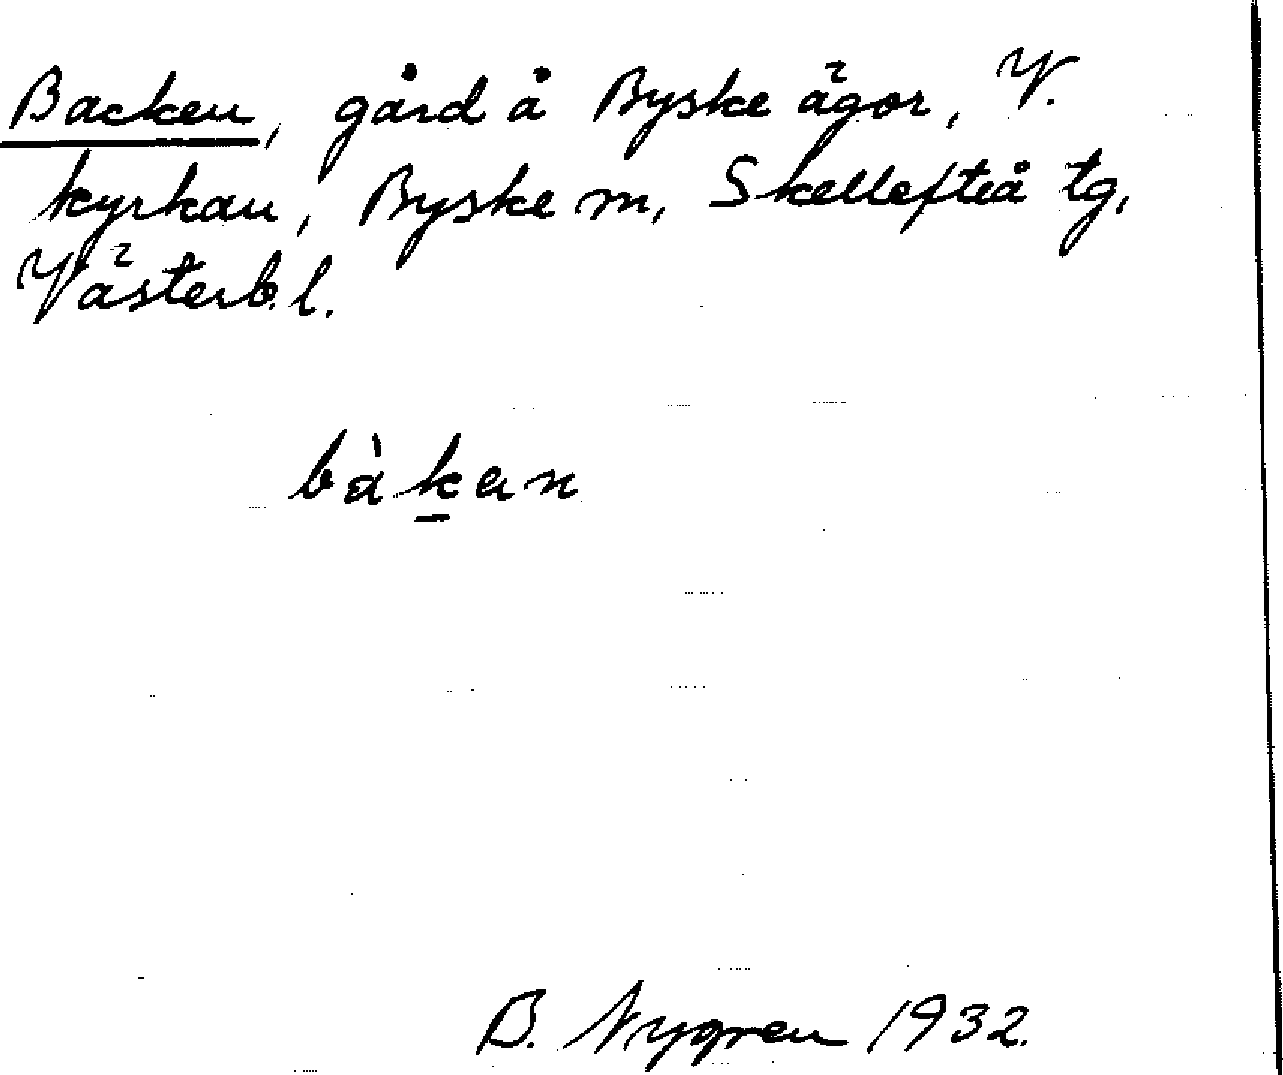 Backen, gård å Byske ägor, V.
kyrkan, Byske sn, Skellefteå tg,
Västerb. l.
bàk̲en
B. Nygren 1932.